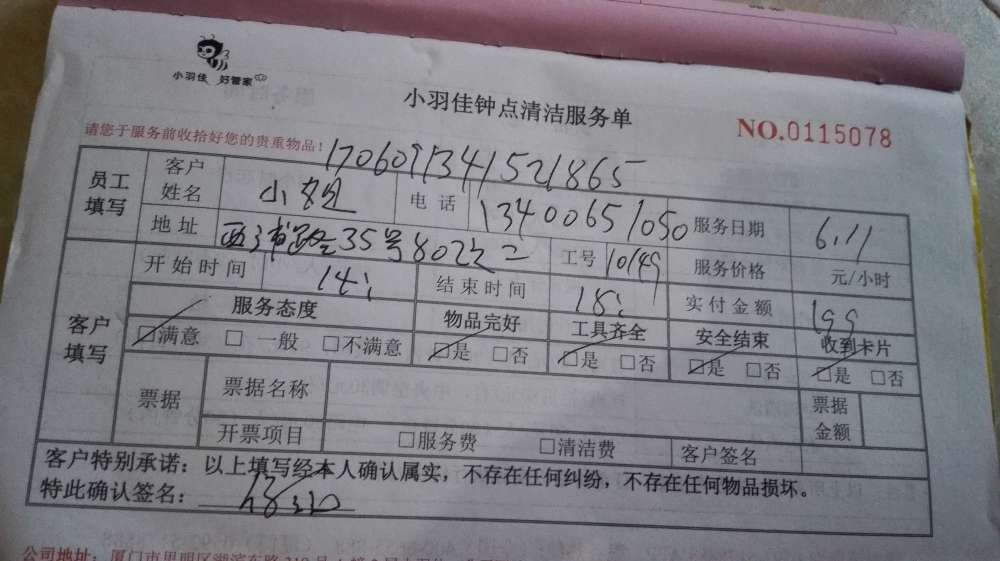 小羽佳 好管家
小羽佳钟点清洁服务单
NO.0115078
请您于服务前收拾好您的贵重物品！
1706091341521865
员工填写 客户姓名 小姐 电话 13400651050 服务日期 6.11
地址 西浦路35号802之二 工号 10149 服务价格 元/小时
客户填写 开始时间 14: 结束时间 18: 实付金额 199
服务态度 物品完好 工具齐全 安全结束 收到卡片
□满意 □一般 □不满意 □是 □否 □是 □否 □是 □否 □是 □否
票据 票据名称 票据金额
开票项目 □服务费 □清洁费 客户签名
客户特别承诺：以上填写经本人确认属实，不存在任何纠纷，不存在任何物品损坏。
特此确认签名：
公司地址：厦门市思明区湖滨东路319号